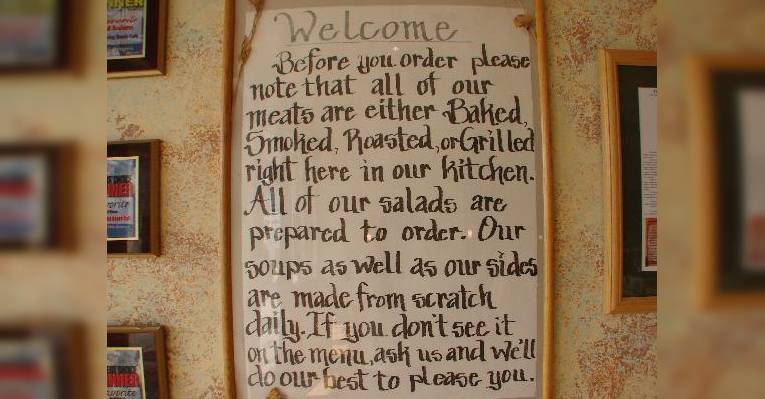 Welcome
Before you order please
note that all of our
meats are either Baked,
Smoked, Roasted, or Grilled
right here in our kitchen.
All of our salads are
prepared to order. Our
soups as well as our sides
are made from scratch
daily. If you don't see it
on the menu, ask us and we'll
do our best to please you.